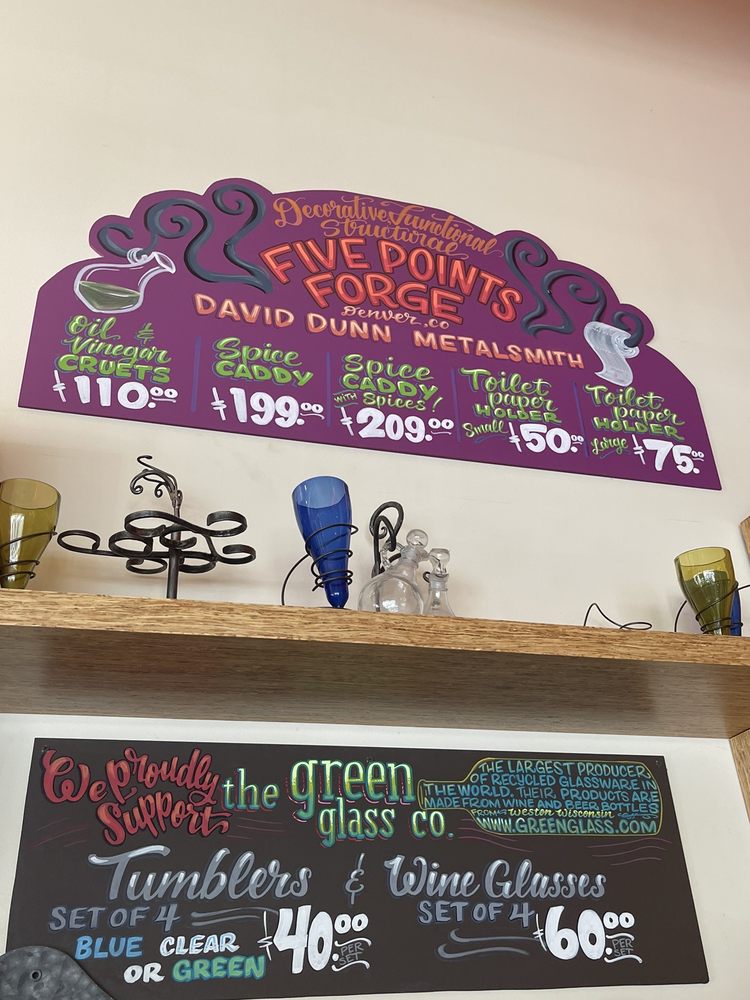 Decorative Functional
Structural
FIVE POINTS
FORGE
Denver, CO
DAVID DUNN METALSMITH
Oil &
Vinegar
CRUETS
$110.00
Spice
CADDY
$199.00
Spice
CADDY
WITH Spices!
$209.00
Toilet
paper
HOLDER
Small $50.00
Toilet
paper
HOLDER
Large $75.00
We proudly
Support
the green
glass co.
THE LARGEST PRODUCER
OF RECYCLED GLASSWARE IN
THE WORLD. THEIR PRODUCTS ARE
MADE FROM WINE AND BEER BOTTLES
FROM Weston Wisconsin
WWW.GREENGLASS.COM
Tumblers & Wine Glasses
SET OF 4
BLUE CLEAR
OR GREEN
$40.00 PER
SET
SET OF 4
$60.00 PER
SET